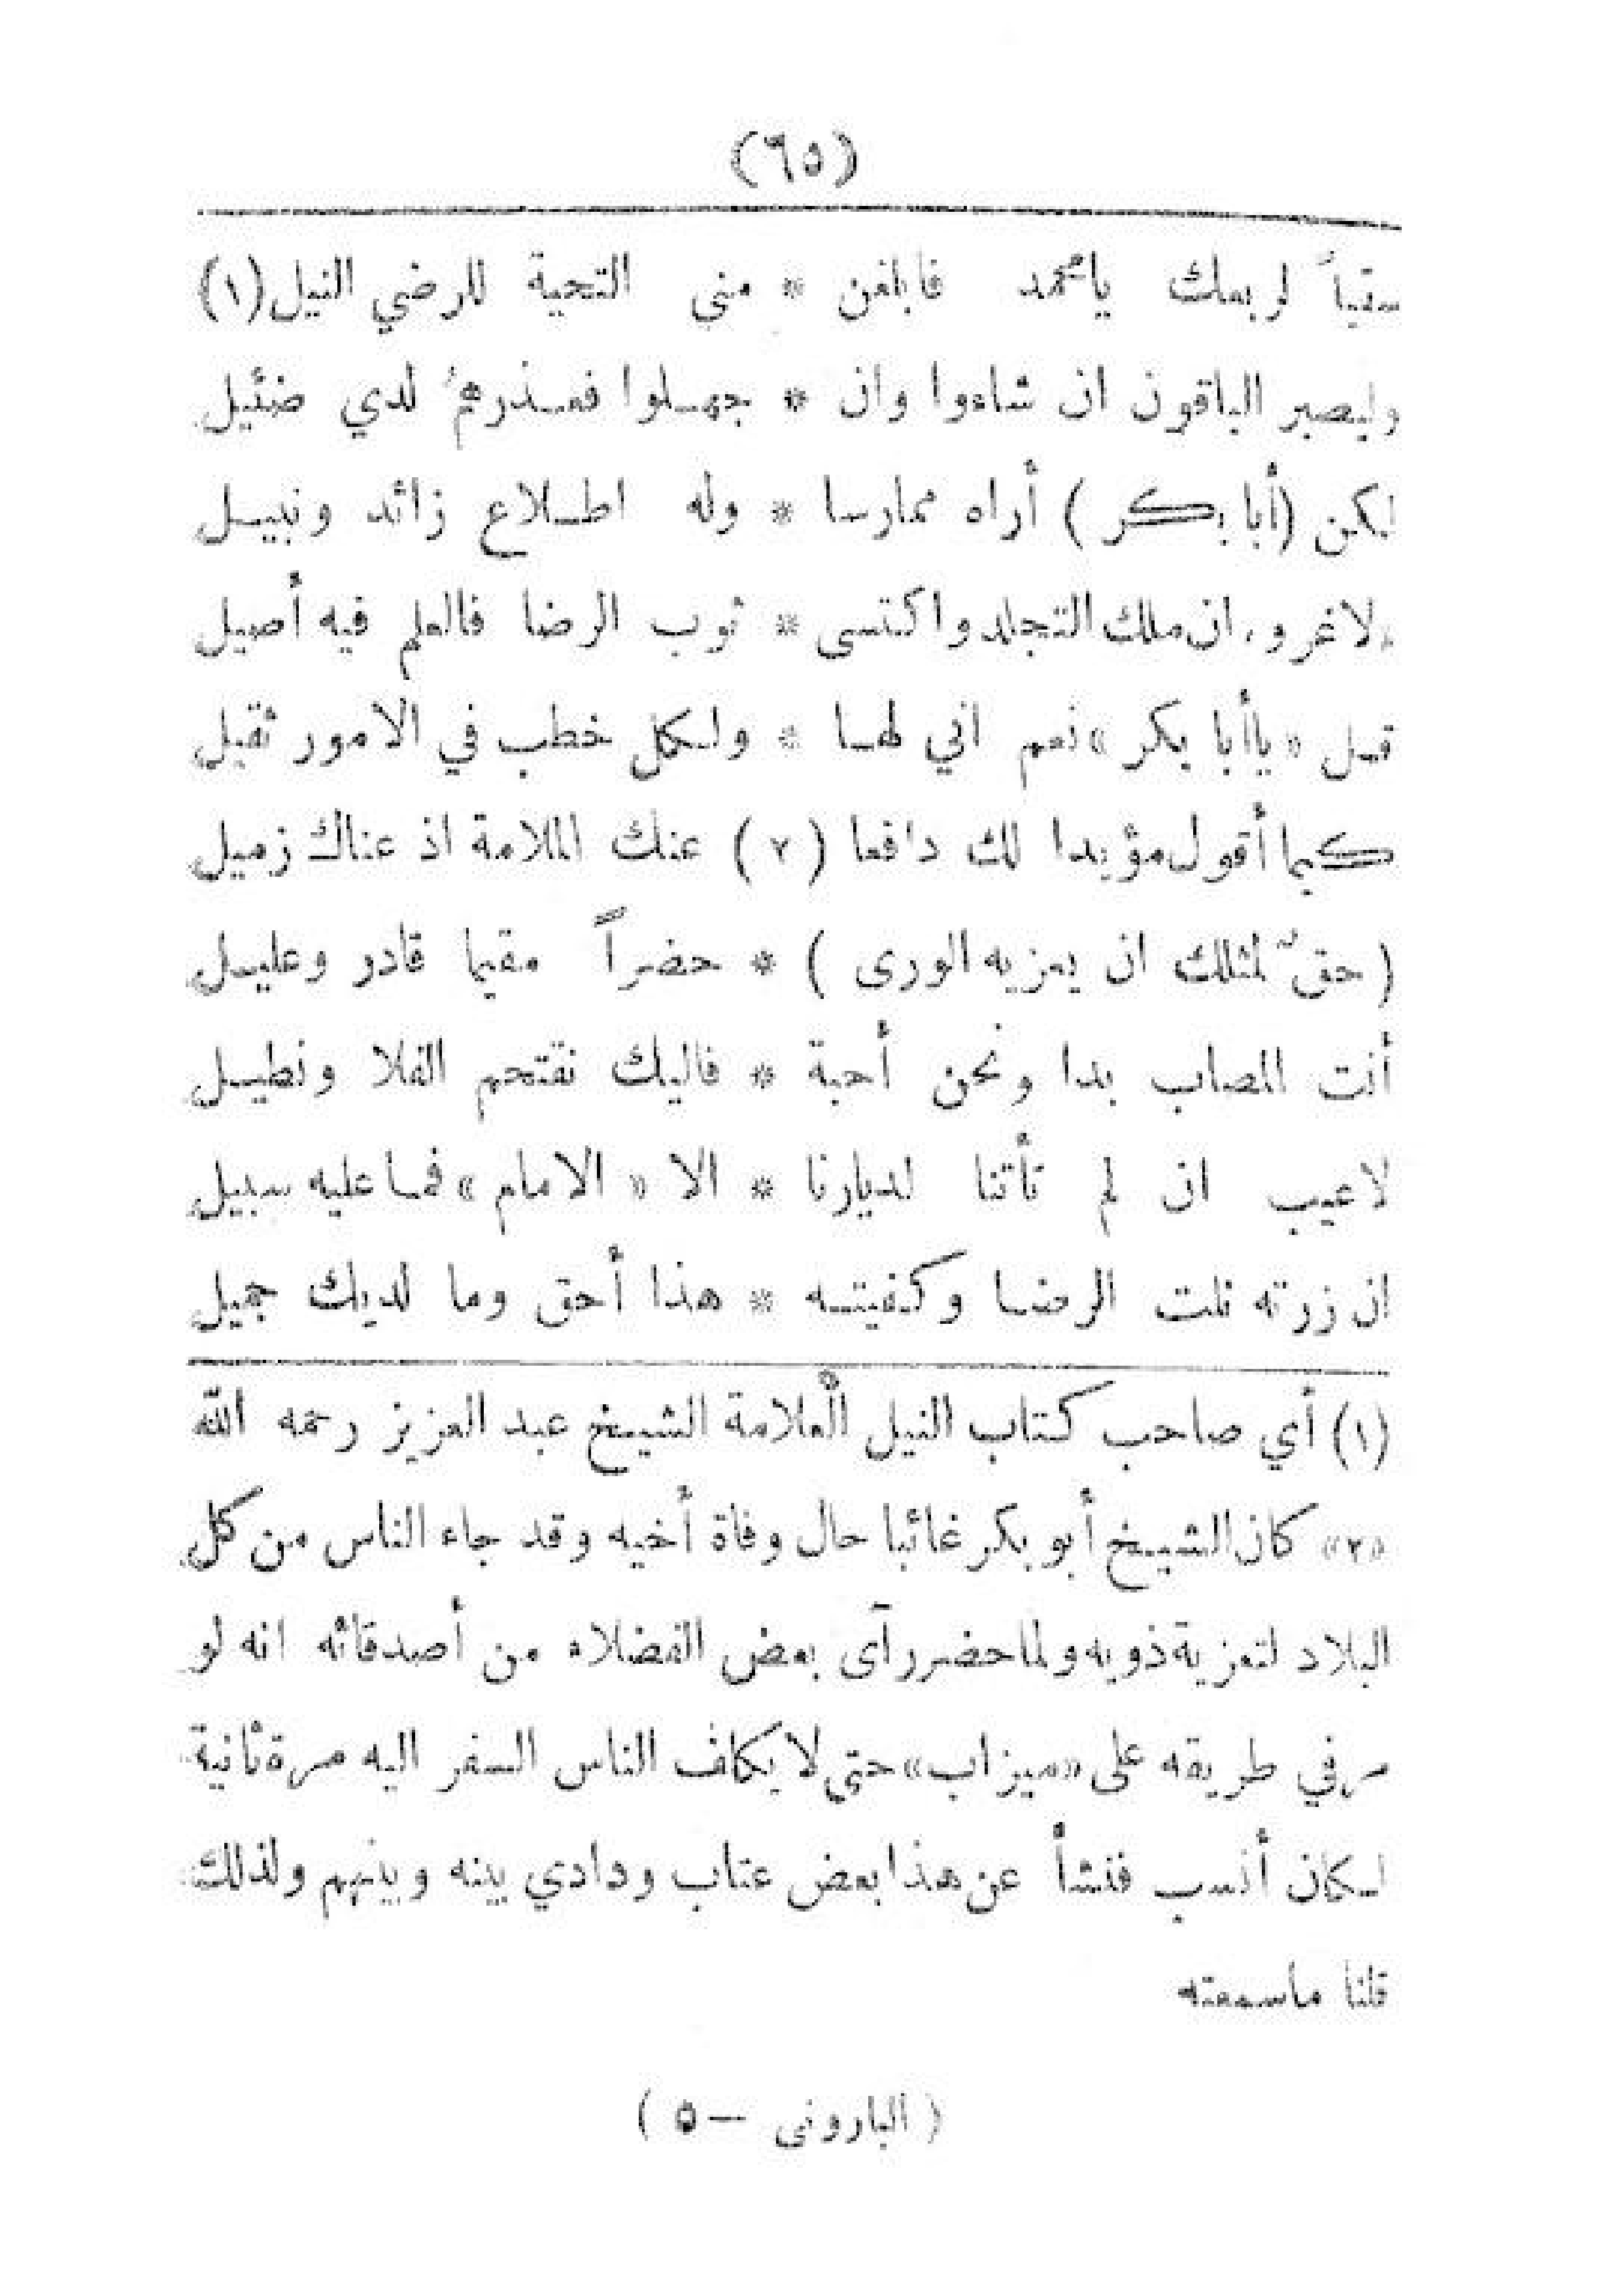 (٦٥)
سقياً لربعك يا محمد فابلغن * منى التحية للرضي النيل (١)
وليصبر الباقون ان شاءوا وان * جهلوا فعذرهم لدي ضئيل
لكن (أبا بكر) أراه ممارسا * وله اطلاع زائد ونبيل
لا غرو ان ملك التجلد واكتسى * ثوب الرضا فالعلم فيه أصيل
قل «يا أبا بكر» نعم اني لها * ولكل خطب في الامور ثقيل
كيما أقول مؤيدا لك دافعا (٢) عنك الملامة اذ عناك زميل
(حقٌ لمثلك ان يعزيه الورى) * حضراً مقيما قادر وعليل
أنت المصاب بدا ونحن أحبة * فاليك نقتحم الفلا ونطيل
لاعيب ان لم تأتنا لديارنا * الا «الامام» فما عليه سبيل
ان زرته نلت الرضا وكفيته * هذا أحق وما لديك جميل
(١) أي صاحب كتاب النيل العلامة الشيخ عبد العزيز رحمه الله
«٢» كان الشيخ أبو بكر غائبا حال وفاة أخيه وقد جاء الناس من كل
البلاد لتعزية ذويه ولما حضر رآى بعض الفضلاء من أصدقائه انه لو
مر في طريقه على «ميزاب» حتى لا يكلف الناس السفر اليه مرة ثانية
لكان أنسب فنشأ عن هذا بعض عتاب ودادي بينه وبينهم ولذلك
قلنا ماسمعته
(البارونى — ٥)